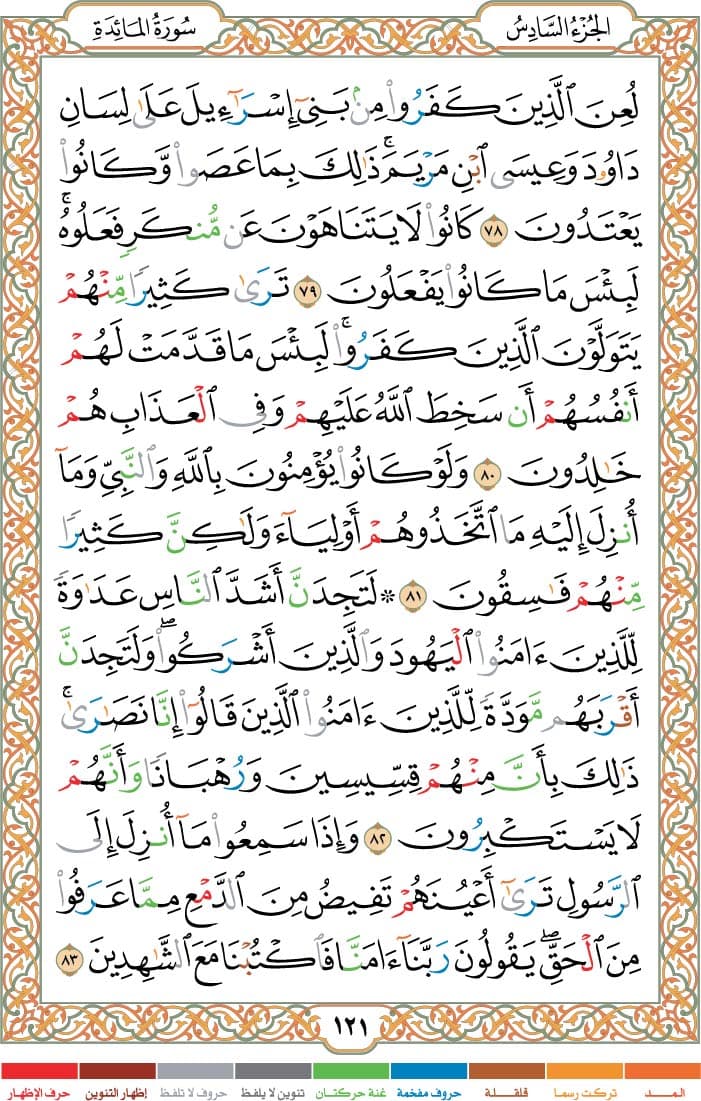 الجُزْءُ السَّادِسُ
سُورَةُ المَائِدَةِ
لُعِنَ ٱلَّذِينَ كَفَرُوا۟ مِنۢ بَنِىٓ إِسْرَٰٓءِيلَ عَلَىٰ لِسَانِ
دَاوُۥدَ وَعِيسَى ٱبْنِ مَرْيَمَ ۚ ذَٰلِكَ بِمَا عَصَوا۟ وَّكَانُوا۟
يَعْتَدُونَ ٧٨ كَانُوا۟ لَا يَتَنَاهَوْنَ عَن مُّنكَرٍ فَعَلُوهُ ۚ
لَبِئْسَ مَا كَانُوا۟ يَفْعَلُونَ ٧٩ تَرَىٰ كَثِيرًا مِّنْهُمْ
يَتَوَلَّوْنَ ٱلَّذِينَ كَفَرُوا۟ ۚ لَبِئْسَ مَا قَدَّمَتْ لَهُمْ
أَنفُسُهُمْ أَن سَخِطَ ٱللَّهُ عَلَيْهِمْ وَفِى ٱلْعَذَابِ هُمْ
خَـٰلِدُونَ ٨٠ وَلَوْ كَانُوا۟ يُؤْمِنُونَ بِٱللَّهِ وَٱلنَّبِىِّ وَمَآ
أُنزِلَ إِلَيْهِ مَا ٱتَّخَذُوهُمْ أَوْلِيَآءَ وَلَـٰكِنَّ كَثِيرًا
مِّنْهُمْ فَـٰسِقُونَ ٨١ ۞ لَتَجِدَنَّ أَشَدَّ ٱلنَّاسِ عَدَٰوَةً
لِّلَّذِينَ ءَامَنُوا۟ ٱلْيَهُودَ وَٱلَّذِينَ أَشْرَكُوا۟ ۖ وَلَتَجِدَنَّ
أَقْرَبَهُم مَّوَدَّةً لِّلَّذِينَ ءَامَنُوا۟ ٱلَّذِينَ قَالُوٓا۟ إِنَّا نَصَـٰرَىٰ ۚ
ذَٰلِكَ بِأَنَّ مِنْهُمْ قِسِّيسِينَ وَرُهْبَانًا وَأَنَّهُمْ
لَا يَسْتَكْبِرُونَ ٨٢ وَإِذَا سَمِعُوا۟ مَآ أُنزِلَ إِلَى
ٱلرَّسُولِ تَرَىٰٓ أَعْيُنَهُمْ تَفِيضُ مِنَ ٱلدَّمْعِ مِمَّا عَرَفُوا۟
مِنَ ٱلْحَقِّ ۖ يَقُولُونَ رَبَّنَآ ءَامَنَّا فَٱكْتُبْنَا مَعَ ٱلشَّـٰهِدِينَ ٨٣
١٢١
المـــد
تركت رسما
قلقـــلة
حروف مفخمة
غنة حركتـان
تنوين لا يلفظ
حروف لا تلفظ
إظهار التنوين
حرف الإظهار